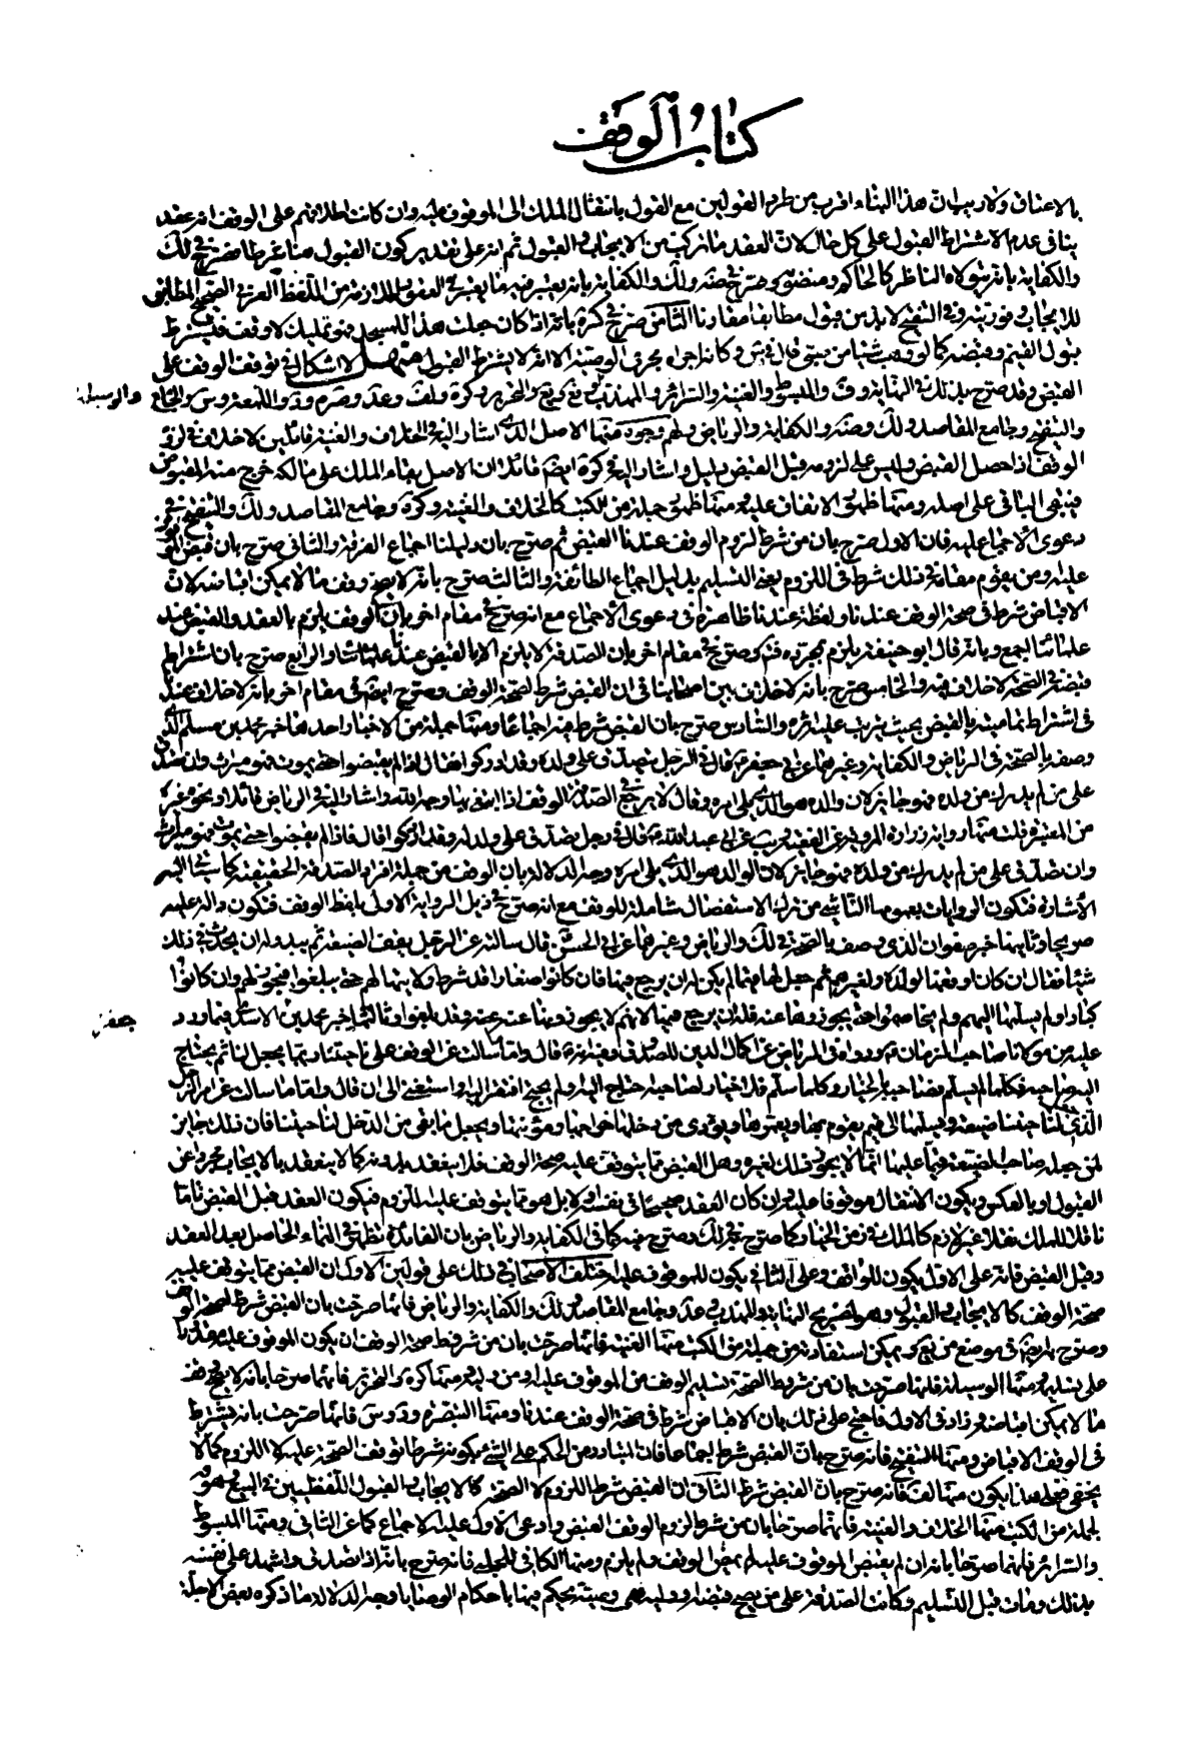 كتاب الوقف
بالاعتاق ولا ريب ان هذا البناء اقرب من طرح القولين مع القول بانتقال الملك الى الموقوف عليه وان كانت اطلاقهم على الوقف انه عقد
ينافى عدم الاشتراط القبول على كل حال لان العقد ما تركب من الايجاب والقبول ثم انه على تقدير كون القبول هنا شرطا صرح فى لك
والكفاية بانه يتولاه الناظر كالحاكم ومنصوبه وصرح فى ولك والكفاية بانه يعتبر فيه ما يعتبر فى العقود اللازمة من اللفظ العربى الصريح المطابق
للايجاب وفوريته وفى التنقيح لابد من قبول مطابقا مقارنا الثامن صرح فى كرة بانه اذا كان جعلت هذا للمسجد فهو تمليك لا وقف فيشترط
قبول القيم وقبضه كما لو وهب شيئا من صبى قال فى س وكانه اجراه مجرى الوصية الا انه لا يشترط القبول منهل لا اشكال فى توقف الوقف على
القبض وقد صرح بذلك فى النهاية و والمبسوط والغنية والسرائر والمهذب و فع و يع والتحرير وكرة ولف وعد وصره ود واللمعة وس والجامع والوسيلة
والتنقيح وجامع المقاصد ولك وضه والكفاية والرياض ولهم وجوه منها الاصل الذى اشار اليه فى الخلاف والغنية قائلين لا خلاف فى لزوم
الوقف اذا حصل القبض وليس على لزومه قبل القبض دليل واشار اليه فى كرة ايضا قائلا ان الاصل بقاء الملك على مالكه خرج منه المقبوض
فيبقى الباقى على اصله ومنها ظهور الاتفاق عليه ومنها ظهور جملة من الكتب كالخلاف والغنية وكرة وجامع المقاصد ولك والتنقيح فى
دعوى الاجماع عليه فان الاول صرح بان من شرط لزوم الوقف عندنا القبض ثم صرح بان دليلنا اجماع الفرقة والثانى صرح بان قبض الموقوف
عليه ومن يقوم مقامه فى ذلك شرط فى اللزوم يعنى التسليم بدليل اجماع الطائفة والثالث صرح بانه لا يصح وقف ما لا يمكن اقباضه لان
الاقباض شرط فى صحة الوقف عندنا ولفظة عندنا ظاهرة فى دعوى الاجماع مع انه صرح فى مقام اخر بان الوقف يلزم بالعقد والقبض عند
علمائنا اجمع وبانه قال ابو حنيفة يلزم بمجرده فى كرة وصرح فى مقام اخر بان الصدقة لا يلزم الا بالقبض عند علمائنا والرابع صرح بان اشتراط
قبضه فى الصحة لا خلاف فيه والخامس صرح بانه لا خلاف بين اصحابنا فى ان القبض شرط لصحة الوقف وصرح ايضا فى مقام اخر بانه لا خلاف عندنا
فى اشتراط تماميته بالقبض بحيث يترتب عليه اثره والسادس صرح بان القبض شرط فيه اجماعا ومنها جملة من الاخبار احدها خبر محمد بن مسلم الذى
وصف بالصحة فى الرياض والكفاية وغيرهما عن ابى جعفر ع قال فى الرجل يتصدق على ولده وقد ادركوا فقال اذا لم يقبضوا حتى يموت فهو ميراث وان تصدق
على من لم يدرك من ولده فهو جايز لان والده هو الذى يلى امره وقال لا يرجع فى الصدقة اذا ابتغى بها وجه الله واشار اليه فى الرياض قائلا ونحوه غيره
من المعتبرة قلت منها رواية زرارة المروية عن الفقيه ويب عن ابى عبد الله ع قال فى رجل تصدق على ولد له وقد ادركوا قال فاذا لم يقبضوا حتى يموت فهو ميراث
وان تصدق على من لم يدرك من ولده فهو جايز لان الوالد هو الذى يلى امره وجه الدلالة بان الوقف من جملة افراد الصدقة الحقيقية كما سيجئ اليه
الاشارة فتكون الروايات بعمومها الناشئ من ترك الاستفصال شاملة للوقف مع انه صرح فى ذيل الرواية الاولى بلفظ الوقف فتكون دالة عليه
صريحا وثانيها خبر صفوان الذى وصف بالصحة فى لك والرياض وغيرهما عن ابى الحسن ع قال سالته عن الرجل يقف الضيعة ثم يبدو له ان يحدث فى ذلك
شيئا فقال ان كان اوقفها لولده ولغيرهم ثم جعل لها قيما لم يكن له ان يرجع فيها فان كانوا صغارا وقد شرط ولايتها لهم حتى يبلغوا فيحوزها لهم وان كانوا
كبارا ولم يسلمها اليهم ولم يخاصموا حتى يحوزوها عنه فله ان يرجع فيها لانهم لا يحوزونها عنه وقد بلغوا وثالثها خبر محمد بن جعفر الاسدى فيما ورد
عليه من مولانا صاحب الزمان ع رواه فى الرياض عن اكمال الدين للصدوق وفيه انه ع قال واما ما سالت عن الوقف على ناحيتنا وما يجعل لنا ثم يحتاج
اليه صاحبه فكلما لم يسلم فصاحبه بالخيار وكلما سلم فلا خيار لصاحبه احتاج اليه او لم يحتج افتقر اليه او استغنى الى ان قال واما ما سالت عن امر الرجل
الذى لناحيتنا ضيعة ويسلمها الى قيم يقوم بها ويعمرها ويؤدى من دخلها خراجها ومؤنتها ويجعل ما بقى من الدخل لناحيتنا فان ذلك جايز
لمن جعله صاحب الضيعة قيما عليها انما لا يجوز ذلك لغيره وهل القبض مما يتوقف عليه صحة الوقف فلا ينعقد بدونه كما لا ينعقد بالايجاب مجردا عن
القبول او بالعكس ويكون الانتقال موقوفا عليه وان كان العقد صحيحا فى نفسه او لا بل هو مما يتوقف عليه اللزوم فيكون العقد قبل القبض تاما
ناقلا للملك نقلا غير لازم كالملك فى زمن الخيار كما صرح فى لك وصرح فيه كما فى الكفاية والرياض بان الفائدة تظهر فى النماء الحاصل بعد العقد
وقبل القبض فانه على الاول يكون للواقف وعلى الثانى يكون للموقوف عليه اختلف الاصحاب فى ذلك على قولين الاول ان القبض مما يتوقف عليه
صحة الوقف كالايجاب والقبول وهو لصريح النهاية والمهذب وعد وجامع المقاصد ولك والكفاية والرياض فانها صرحت بان القبض شرط لصحة الوقف
وصرح به ايضا فى موضع من يع ويمكن استفادته من جملة من الكتب منها الغنية فانها صرحت بان من شروط صحة الوقف ان يكون الموقوف عليه مقدورا
على تسليمه ومنها الوسيلة فانها صرحت بان من شروط الصحة تسليم الوقف من الموقوف عليه او من وليه ومنها كرة والتحرير فانهما صرحا بانه لا يصح وقف
ما لا يمكن اقباضه وزاد فى الاول فاحتج على ذلك بان الاقباض شرط فى صحة الوقف عندنا ومنها التبصرة ود وس فانها صرحت بانه يشترط
فى الوقف الاقباض ومنها التنقيح فانه صرح بان القبض شرط اجماعا فان المتبادر من الحكم على الشئ بكونه شرطا توقف الصحة عليه لا اللزوم كما لا
يخفى فعلى هذا يكون منها لف فانه صرح بان القبض شرط الثانى ان القبض شرط اللزوم لا الصحة كالايجاب والقبول اللفظيين فى البيع وهو
لجملة من الكتب منها الخلاف والغنية فانهما صرحا بان من شرط لزوم الوقف القبض وادعى الاول عليه الاجماع كما عن الثانى ومنها المبسوط
والسرائر فانهما صرحا بانه ان لم يقبض الموقوف عليه لم يمض الوقف ولم يلزم ومنها الكافى للحلبى فانه صرح بانه اذا تصدق واشهد على نفسه
بذلك ومات قبل التسليم وكانت الصدقة على من يصح قبضه او وليه فهى وصية يحكم فيها باحكام الوصايا وجه الدلالة ما ذكره بعض الاجلة